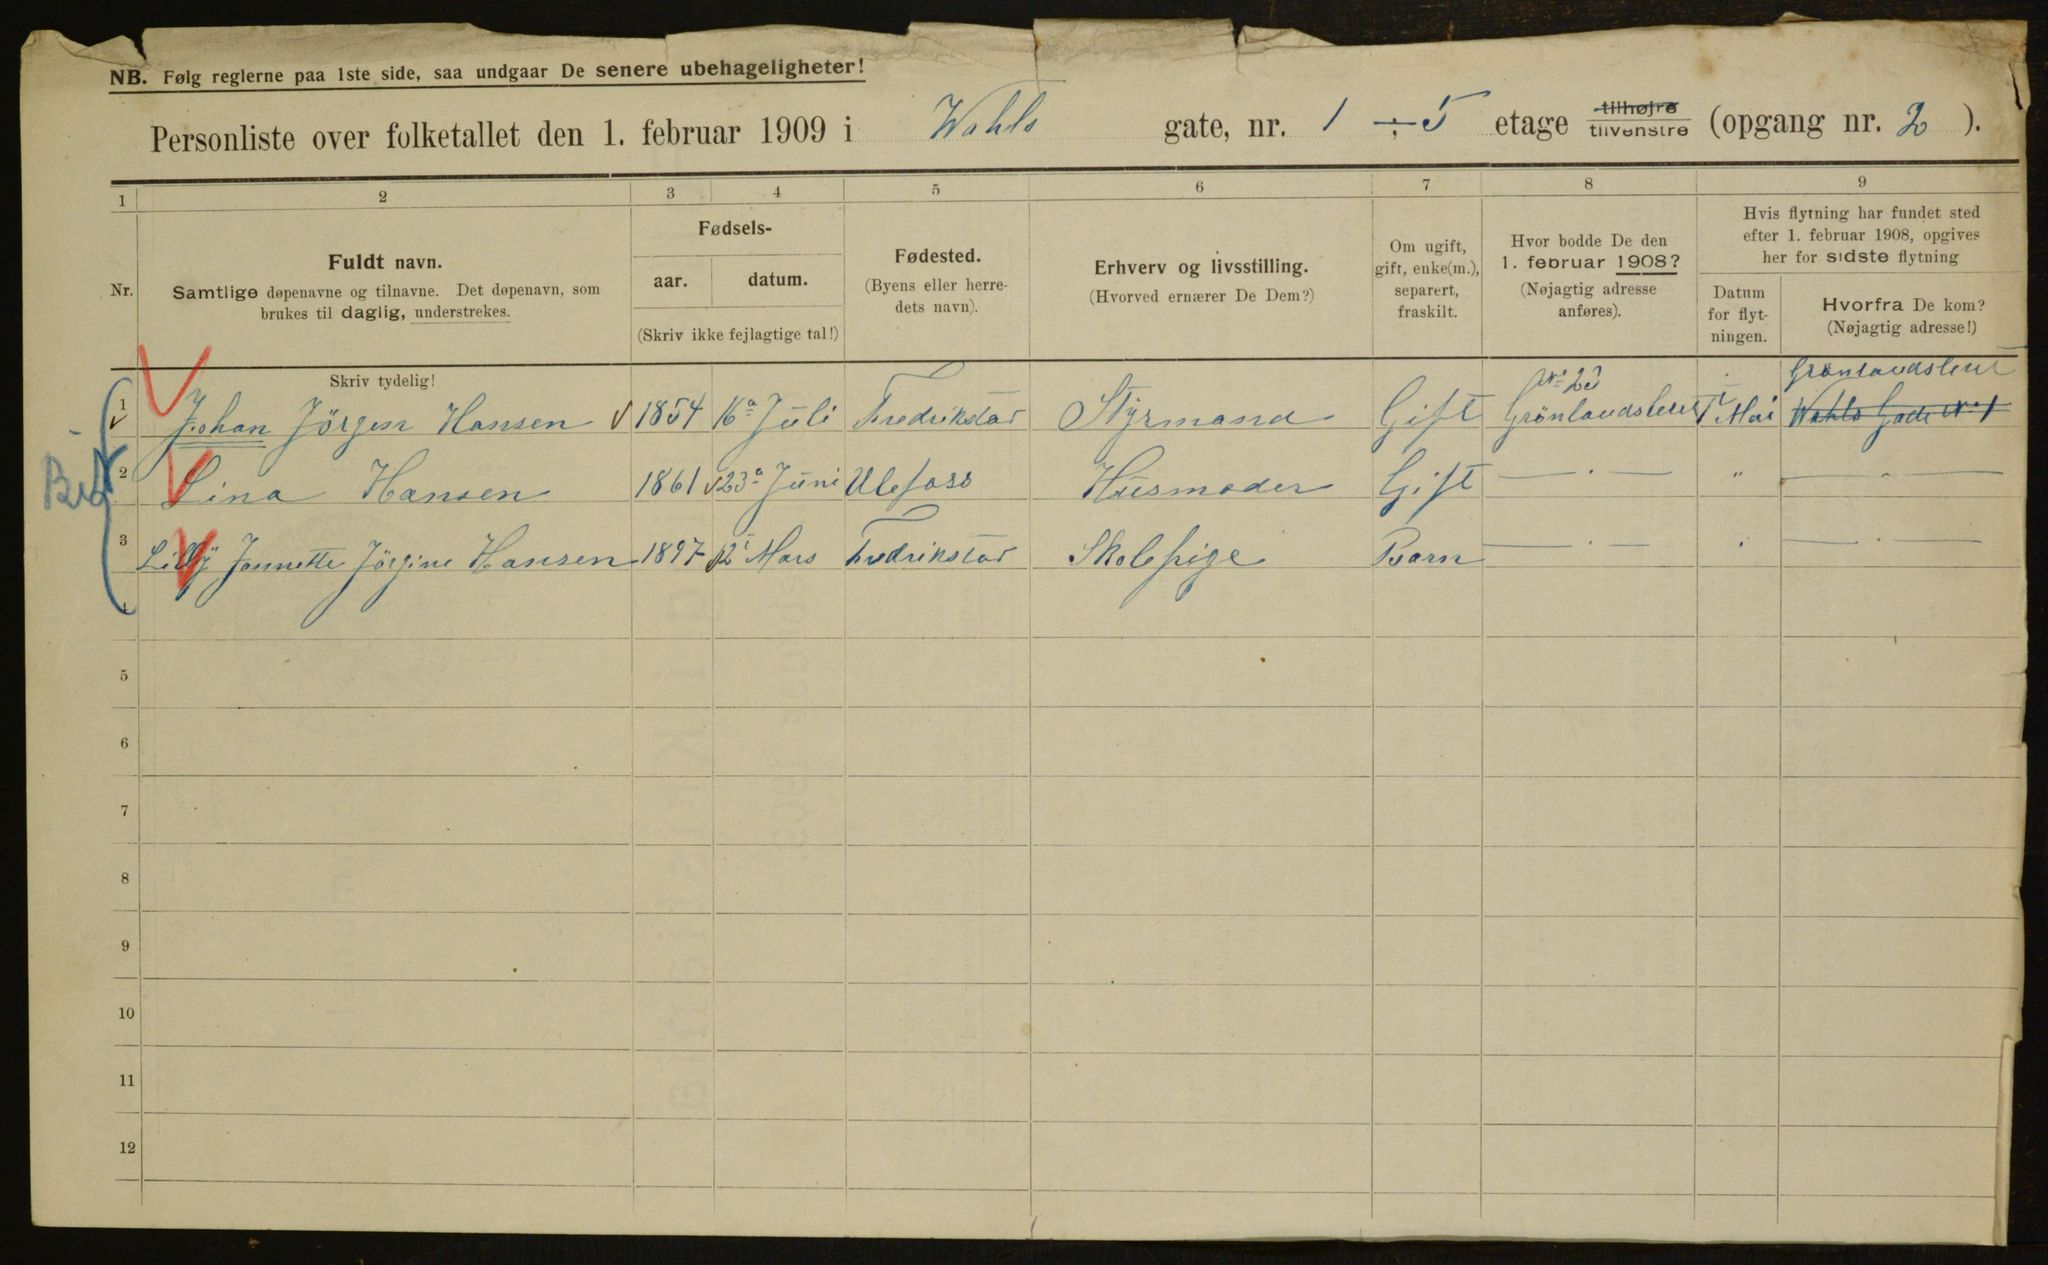 NB. Følg reglerne paa 1ste side, saa undgaar De senere ubehageligheter!
Personliste over folketallet den 1. februar 1909 i Wahls gate, nr. 1 ÷ 5 etage tilhøjre tilvenstre (opgang nr. 2 ).
1 2 3 4 5 6 7 8 9
Nr.
Fuldt navn.
Samtlige døpenavne og tilnavne. Det døpenavn, som
brukes til daglig, understrekes.
Skriv tydelig!
Fødsels-
aar. datum.
(Skriv ikke fejlagtige tal!)
Fødested.
(Byens eller herre-
dets navn).
Erhverv og livsstilling.
(Hvorved ernærer De Dem?)
Om ugift,
gift, enke(m.),
separert,
fraskilt.
Hvor bodde De den
1. februar 1908?
(Nøjagtig adresse
anføres).
Hvis flytning har fundet sted
efter 1. februar 1908, opgives
her for sidste flytning
Datum
for flyt-
ningen.
Hvorfra De kom?
(Nøjagtig adresse!)
No 23 Grönlandsleret
1 Johan Jörgen Hansen 1854 16 Juli Fredrikstad Styrmand Gift Grönlandsleret 1 Mai Wahls Gade No 1
2 Lina Hansen 1861 23 Juni Ulefoss Husmoder Gift — · — " — " —
3 Lilly Jannette Jörgine Hansen 1897 12 Mars Fredrikstad Skolepige Barn — · — " — · —
4
5
6
7
8
9
10
11
12